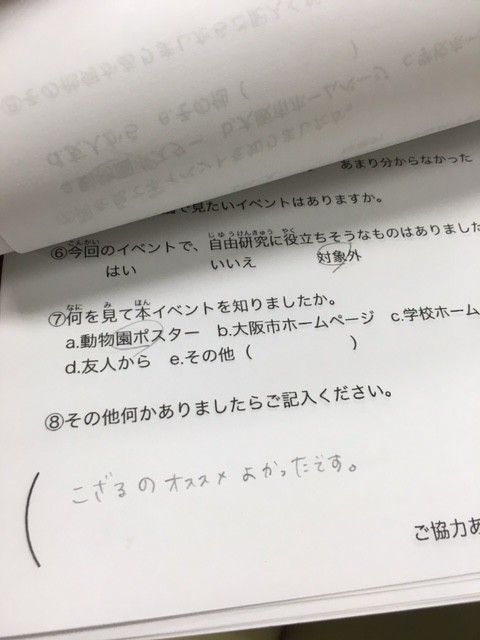 d.友人から e.その他 ( )
あまり分からなかった
で見たいイベントはありますか。
⑥今回のイベントで、自由研究に役立ちそうなものはありました
はい いいえ 対象外
⑦何を見て本イベントを知りましたか。
a.動物園ポスター b.大阪市ホームページ c.学校ホーム
d.友人から e.その他 ( )
⑧その他何かありましたらご記入ください。
こざるのオススメよかったです。
ご協力あ